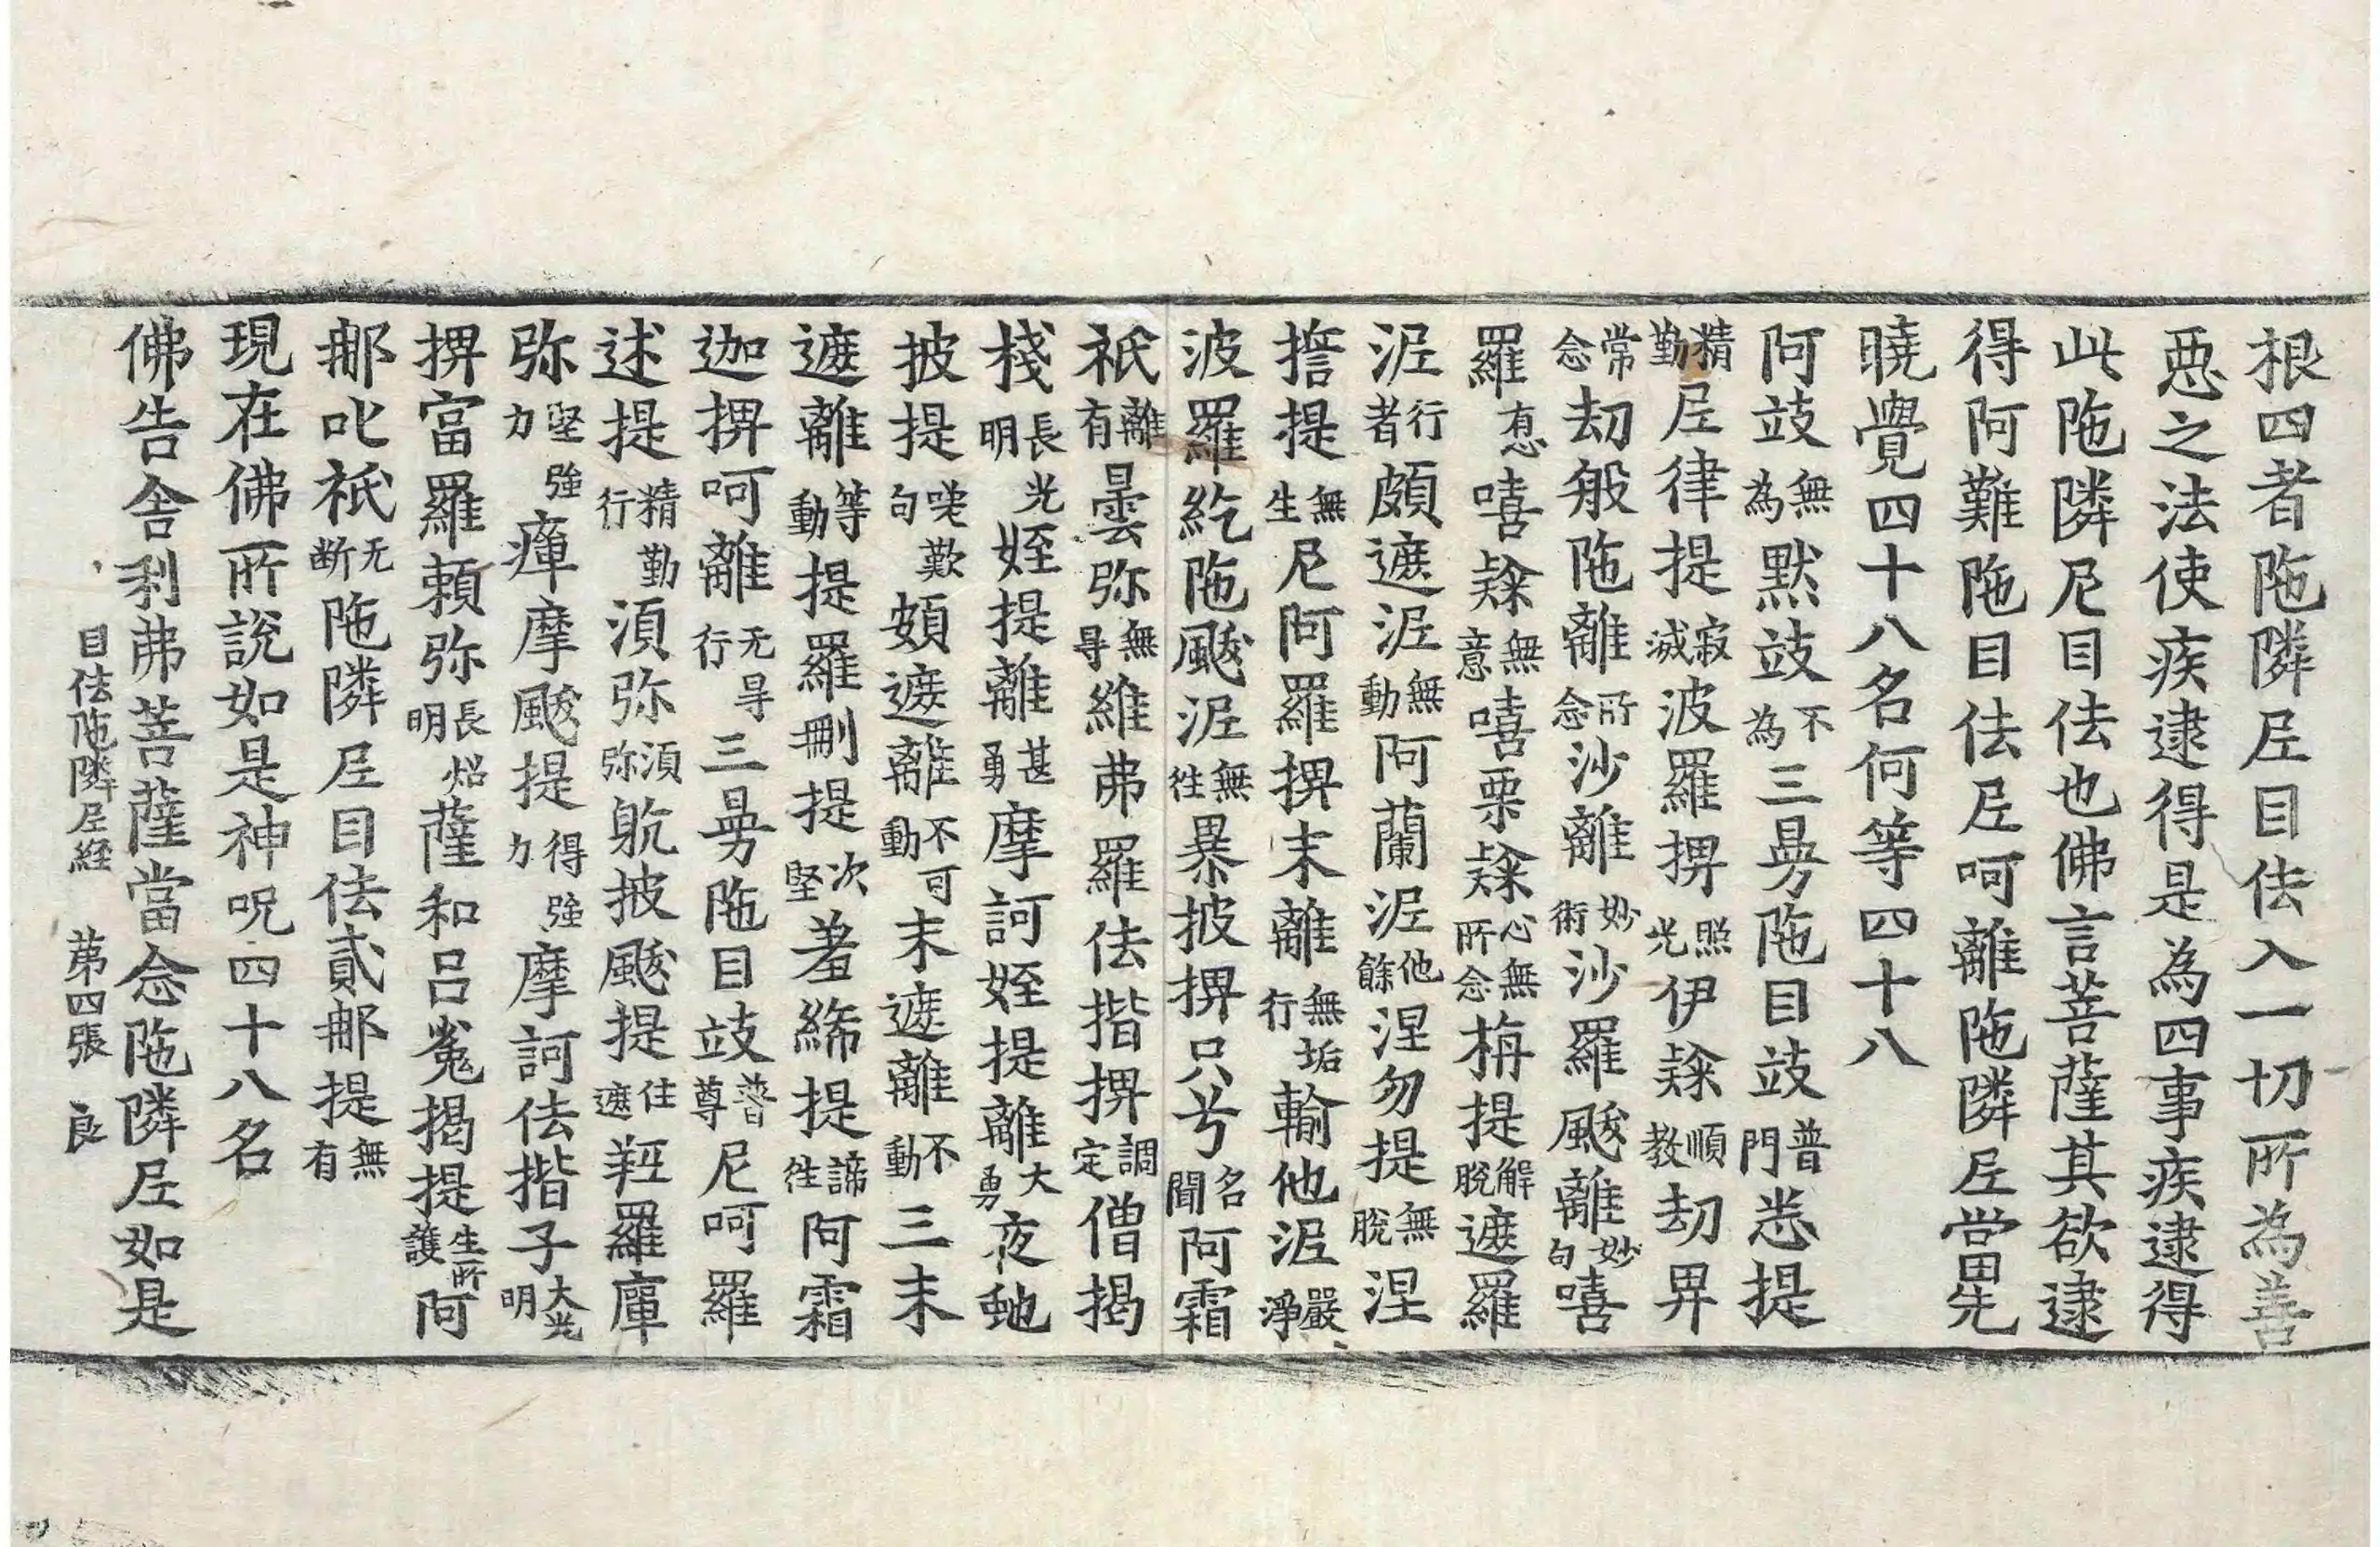 根四者陁隣𡰱目佉入一切所為善
惡之法使疾逮得是為四事疾逮得
此陁隣尼目佉也佛言菩薩其欲逮
得阿難陁目佉𡰱呵離陁隣𡰱當先
曉覺四十八名何等四十八
阿䟕無為默䟕不為三曼陁目䟕普門恙提
精勤𡰱律提寂滅波羅㨽照光伊𨽻順教劫畀
常念劫般陁離所念沙離妙術沙羅颰離妙句嘻
羅有㥯嘻𨽻無意嘻栗𨽻心無所念栴提解脫遮羅
泥行者頗遮泥無動阿蘭泥他餘涅勿提無脫涅
㨂提無生尼阿羅㨽末離無垢行輸他泥嚴淨
波羅紇陁颰泥無往暴披㨽只兮名聞阿霜
祇離有曇弥無㝵維弗羅佉揩㨽調定僧揭
棧長光明姪提離甚勇摩訶姪提離大勇夜虵
披提唉歎句頗遮離不可動末遮離不動三末
遮離等動提羅刪提次堅羞絺提諦往阿霜
迦㨽呵離无㝵行三曼陁目䟕普尊尼呵羅
述提精勤行湏弥湏弥躭披颰提住遮羥羅庫
弥堅強力瘒摩颰提得強力摩訶佉揩子大光明
㨽富羅頼弥長炤明薩和呂㝹揭提生所護阿
𨚗叱祇无断陁隣𡰱目佉貳𨚗提無有
現在佛所說如是神呪四十八名
佛告舍利弗菩薩當念陁隣𡰱如是
目佉陁隣𡰱経 苐四張 良